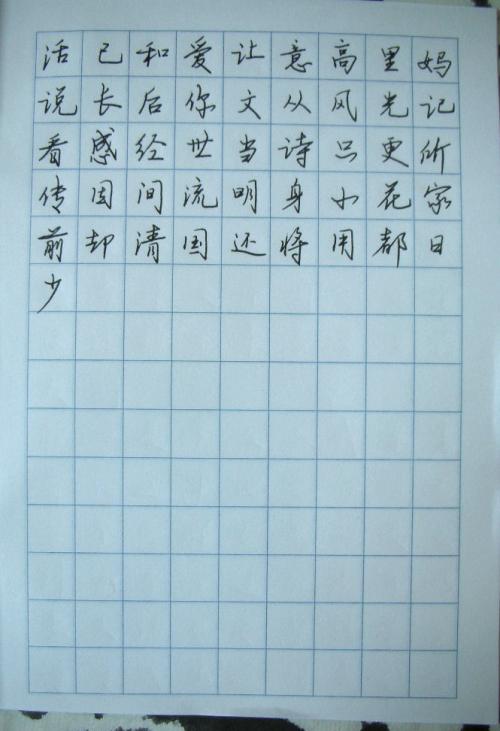 活已和爱让意高里妈
说长后你文从风光记
看感经世当诗只更所
传因间流明身小花家
前却清国还将用都日
少